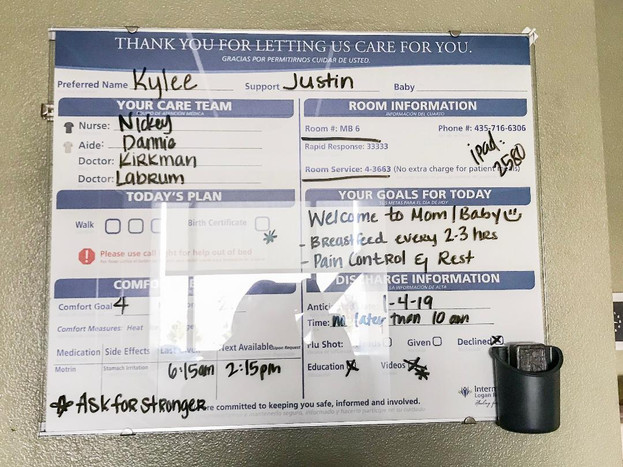 THANK YOU FOR LETTING US CARE FOR YOU.
GRACIAS POR PERMITIRNOS CUIDAR DE USTED.
Preferred Name Kylee Support Justin Baby
YOUR CARE TEAM
Nurse: Nickey
Aide: Dannie
Doctor: Kirkman
Doctor: Labrum
ROOM INFORMATION
INFORMACIÓN DEL CUARTO
Room #: MB 6 Phone #: 435-716-6306
Rapid Response: 33333
ipad: 2580
Room Service: 4-3663 (No extra charge for patient
TODAY'S PLAN
Walk Birth Certificate
*
Please use call light for help out of bed
YOUR GOALS FOR TODAY
SUS METAS PARA EL DÍA DE HOY
Welcome to Mom/Baby
- Breastfeed every 2-3 hrs
- Pain Control & Rest
Comfort Goal 4
Comfort Measures: Heat
Medication Side Effects Available Upon Request
Motrin Stomach Irritation 6:15am 2:15pm
* Ask for Stronger
DISCHARGE INFORMATION
INFORMACIÓN DE ALTA
1-4-19
Time: no later than 10 am
Flu Shot: Given Declined X
Education X Videos X
are committed to keeping you safe, informed and involved.
Logan